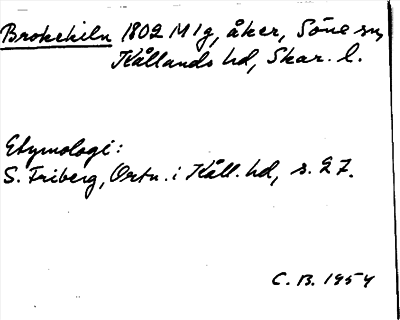 Brokekiln 1802 M lg, åker, Söne sn,
Kållands hd, Skar. l.
Etymologi:
S. Friberg, Ortn. i Kåll. hd, s. 27.
C. B. 1954